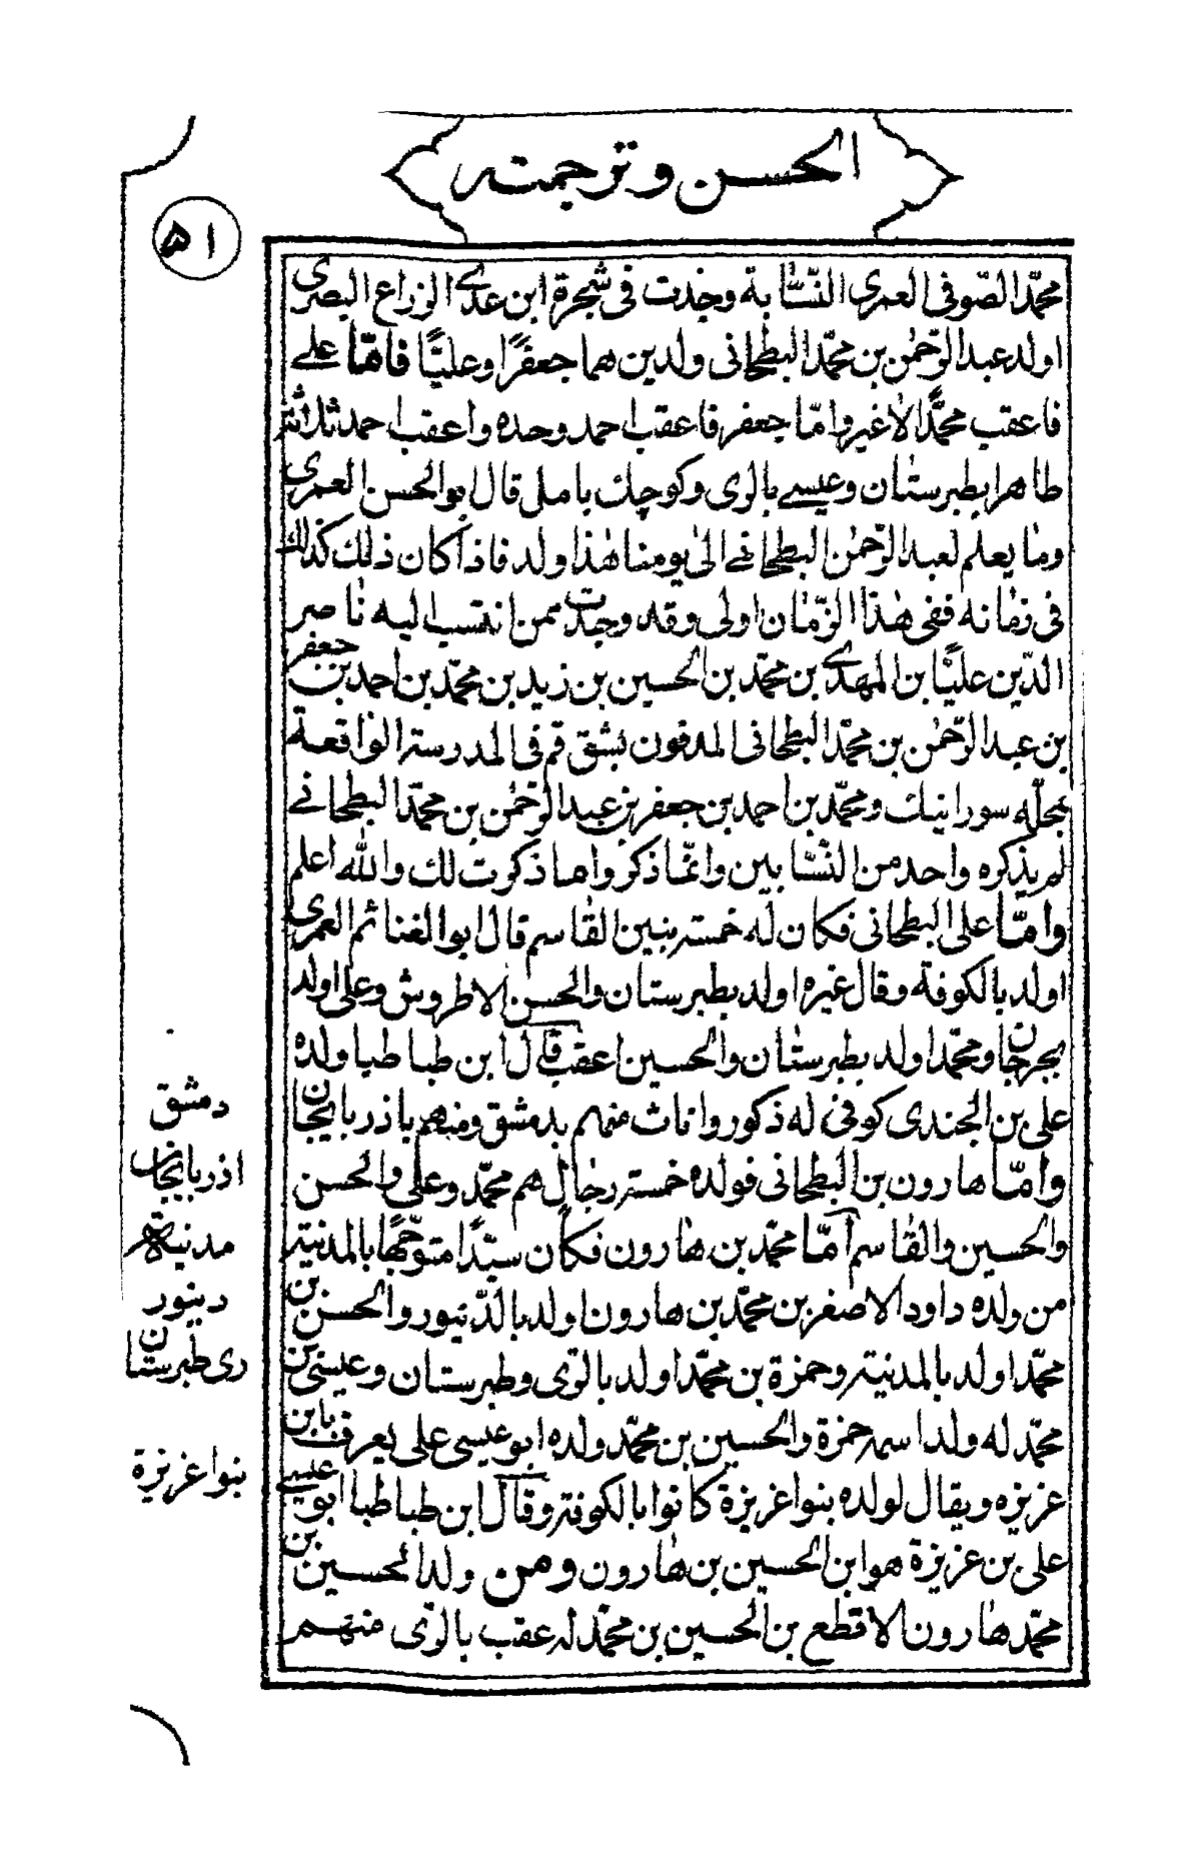 الحسن وترجمته
٥١
محمّد الصّوفی العمری النّسّابة وجدت فی شجرة ابن عدی الزراع البصری
اولد عبد الرّحمٰن بن محمّد البطحانی ولدین هما جعفرًا وعلیًّا فامّا علے
فاعقب محمّدًا لاغیر وامّا جعفر فاعقب احمد وحده واعقب احمد ثلاثة
طاهرا بطبرستان وعیسے بالری وکوچك باملی قال ابو الحسن العمری
وما یعلم لعبد الرّحمٰن البطحانے الیٰ یومنا هٰذا ولد فاذا کان ذلك کذلك
فی زمانه ففی هٰذا الزّمان اولی وقد وجدت ممن انتسب الیه ناصر
الدّین علیًّا بن المهدی بن محمّد بن الحسین بن زید بن محمّد بن احمد بن جعفر
بن عبد الرّحمٰن بن محمّد البطحانی المدفون بشق قم فی المدرسة الواقعة
بمحلّه سورانیك ومحمّد بن احمد بن جعفر بن عبد الرّحمٰن بن محمّد البطحانے
لم یذکره واحد من النّسّابین وانّما ذکروا ما ذکرت لك والله اعلم
وامّا علی البطحانی فکان له خمسة بنین القاسم قال ابو الغنائم العمری
اولد بالکوفة وقال غیره اولد بطبرستان والحسن الاطروش وعلی اولد
بجرجان ومحمّد اولد بطبرستان والحسین اعقب قال ابن طباطبا ولده
علی بن الجندی کوفی له ذکور واناث منهم بدمشق ومنهم باذربایجان
وامّا هارون بن البطحانی فولده خمسة رجال هم محمّد وعلی والحسن
والحسین والقاسم امّا محمّد بن هارون فکان سیّدًا متوجّهًا بالمدنیة
من ولده داود الاصغر بن محمّد بن هارون اولد بالدّینور والحسن بن
محمّد اولد بالمدنیة وحمزة بن محمّد اولد بالرّی وطبرستان وعیسی بن
محمّد له ولد اسمه حمزة والحسین بن محمّد ولده ابو عیسی علی یعرف بابن
عزیزه ویقال لولده بنوا عزیزة کانوا بالکوفة وقال ابن طباطبا ابو عیسے
علی بن عزیزة هو ابن الحسین بن هارون ومن ولد الحسین بن
محمّد هارون الاقطع بن الحسین بن محمّد له عقب بالرّی منهم
دمشق
اذربایجان
دینور
ری طبرستان
بنوا عزیزة